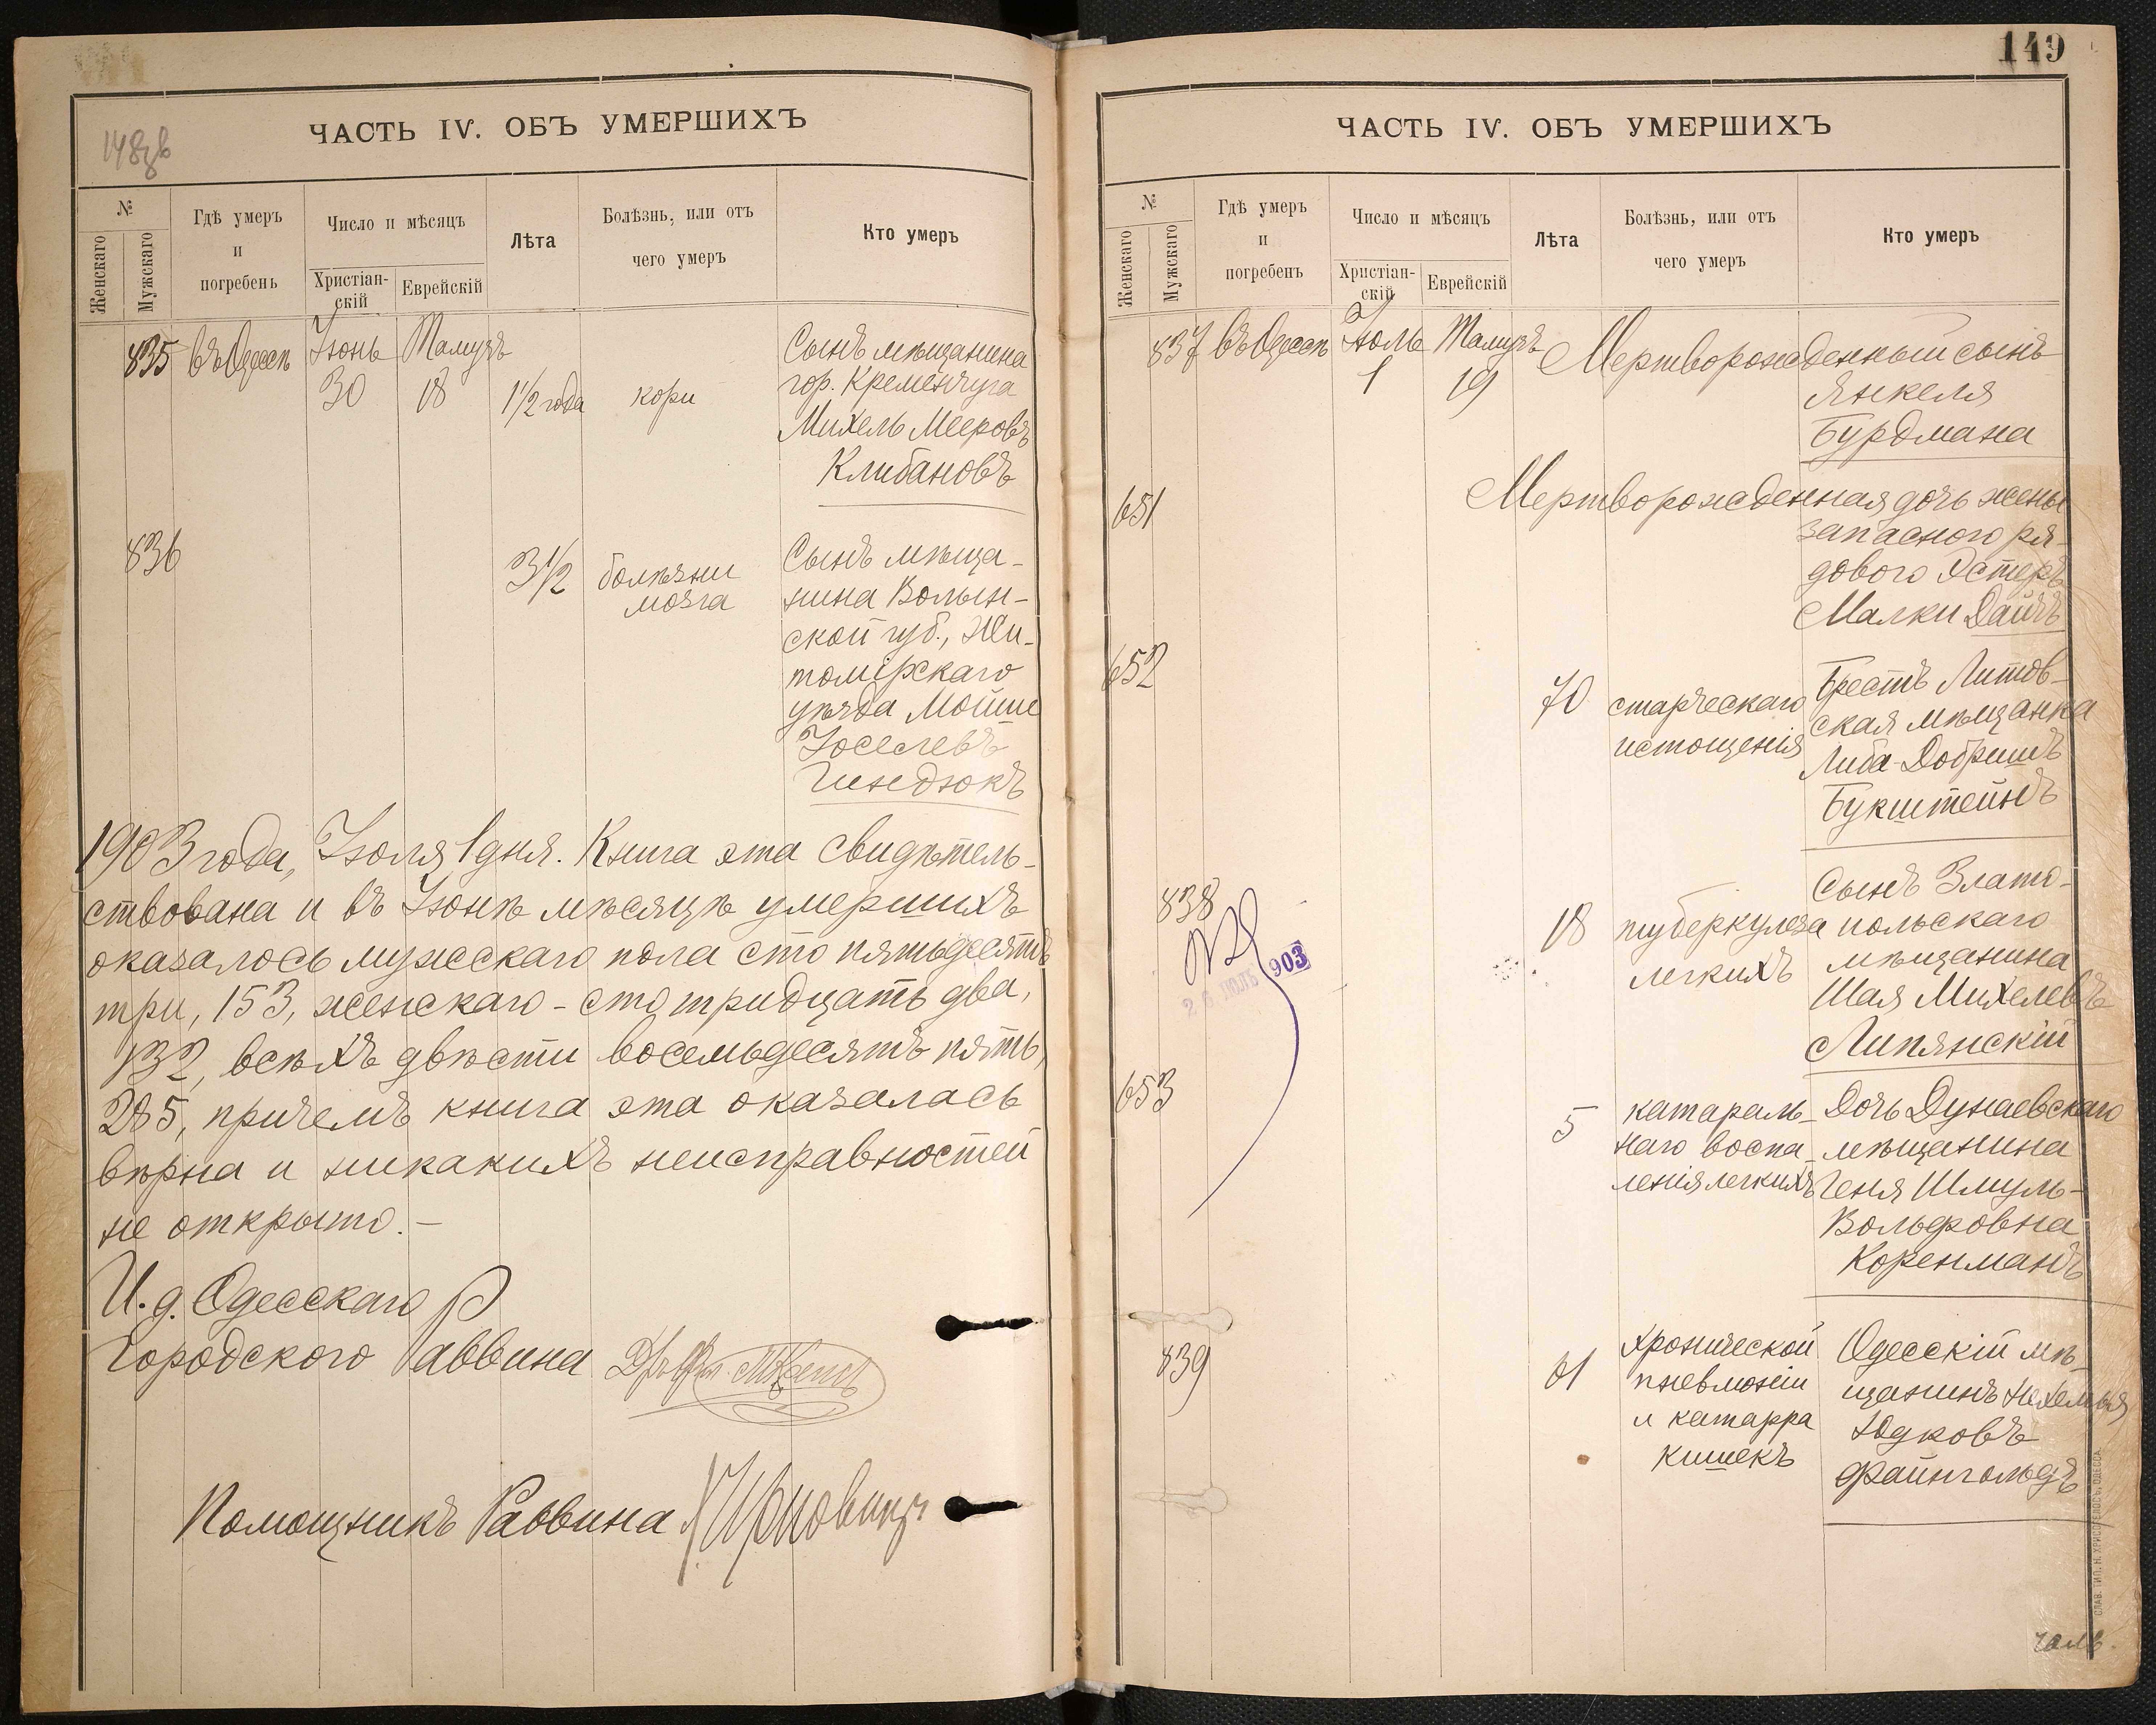 148об
ЧАСТЬ IV. ОБЪ УМЕРШИХЪ
№
Женскаго
Мужскаго
Гдѣ умеръ
и
погребенъ
Число и мѣсяцъ
Христіан-
скій
Еврейскій
Лѣта
Болѣзнь, или отъ
чего умеръ
Кто умеръ
835 въ Одессѣ Іюнь Тамузъ
30 18 1½ года кори
Сынъ мѣщанина
гор. Кременчуга
Михель Мееровъ
Клибановъ
836 3½ болѣзни
мозга
Сынъ мѣща-
нина Волын-
ской губ., Жи-
томірскаго
уѣзда Мойше
Іоселевъ
Гиндюкъ
1903 года, Іюля 1 дня. Книга эта свидѣтель-
ствована и въ Іюнѣ мѣсяцѣ умершихъ
оказалось мужескаго пола сто пятьдесятъ
три, 153, женскаго - сто тридцать два,
132, всѣхъ двѣсти восемьдесятъ пять,
285, причемъ книга эта оказалась
вѣрна и никакихъ неисправностей
не открыто. -
И. д. Одесскаго
Городского Раввина
Помощникъ Раввина
149
ЧАСТЬ IV. ОБЪ УМЕРШИХЪ
№
Женскаго
Мужскаго
Гдѣ умеръ
и
погребенъ
Число и мѣсяцъ
Христіан-
скій
Еврейскій
Лѣта
Болѣзнь, или отъ
чего умеръ
Кто умеръ
837 въ Одессѣ Іюль Тамузъ Мертворожденный сынъ
1 19 Янкеля
Бурдмана
651 Мертворожденная дочь жены
запасного ря-
дового Эстеръ
Малки Дайчъ
652 70 старческаго
истощенія
Брестъ Литов-
ская мѣщанка
Либа-Добришъ
Букштейнъ
838 18 туберкулеза
легкихъ
Сынъ Злато-
польскаго
мѣщанина
Шая Михелевъ
Липянскій
903
653 5 катараль-
наго воспа-
ленія легкихъ
Дочь Дунаевскаго
мѣщанина
Геня Шмуль-
Вольфовна
Коренманъ
839 61 хронической
пневмоніи
и катарра
кишекъ
Одесскій мѣ-
щанинъ Нехемья
Юдковъ
Файнгольдъ
СЛАВ. ТИП. Н. ХРИСОГЕЛОСЪ, ОДЕССА.